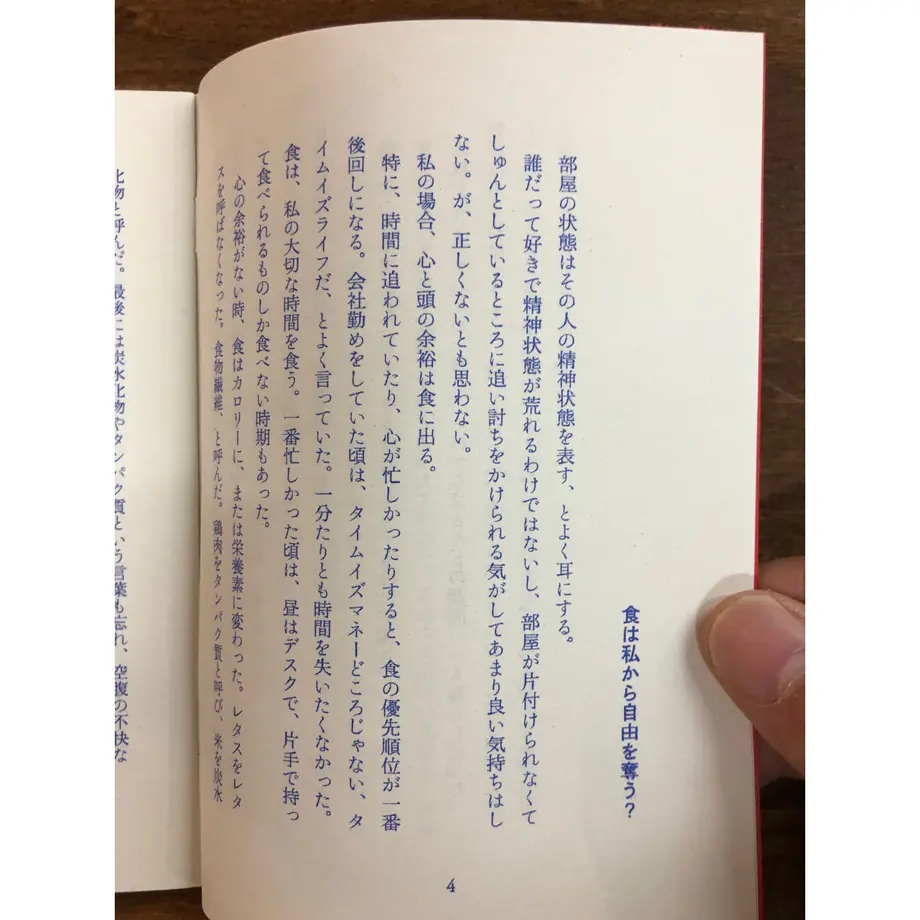 食は私から自由を奪う？
部屋の状態はその人の精神状態を表す、とよく耳にする。
誰だって好きで精神状態が荒れるわけではないし、部屋が片付けられなくて
しゅんとしているところに追い討ちをかけられる気がしてあまり良い気持ちはし
ない。が、正しくないとも思わない。
私の場合、心と頭の余裕は食に出る。
特に、時間に追われていたり、心が忙しかったりすると、食の優先順位が一番
後回しになる。会社勤めをしていた頃は、タイムイズマネーどころじゃない、タ
イムイズライフだ、とよく言っていた。一分たりとも時間を失いたくなかった。
食は、私の大切な時間を食う。一番忙しかった頃は、昼はデスクで、片手で持っ
て食べられるものしか食べない時期もあった。
心の余裕がない時、食はカロリーに、または栄養素に変わった。レタスをレタ
スを呼ばなくなった。食物繊維、と呼んだ。鶏肉をタンパク質と呼び、米を炭水
化物と呼んだ。最後には炭水化物やタンパク質という言葉も忘れ、空腹の不快な
4